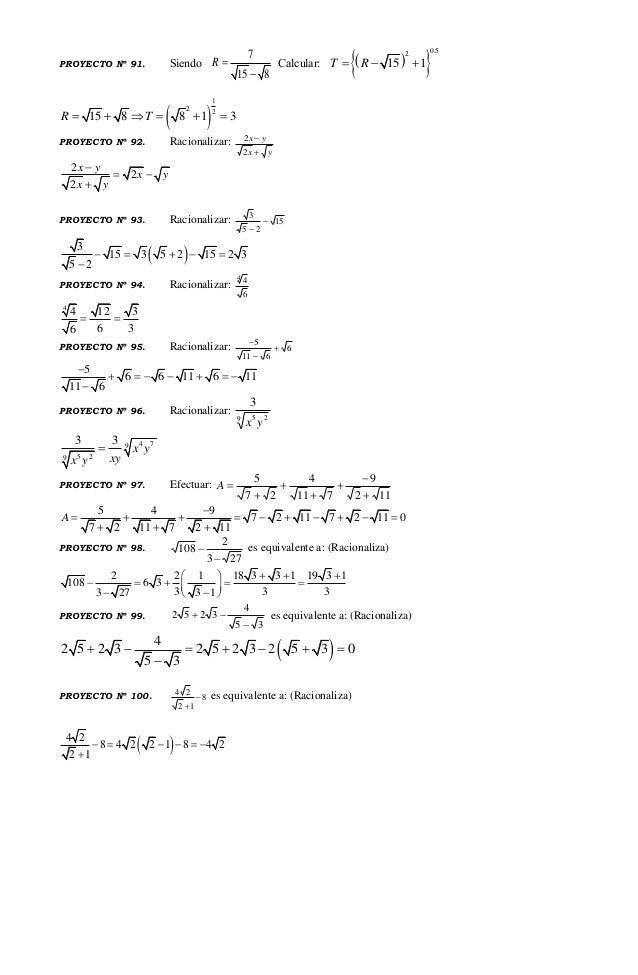 PROYECTO Nº 91. Siendo R = 7/(√15 − √8) Calcular: T = {(R − √15)² + 1}^0.5
R = √15 + √8 ⇒ T = (√8² + 1)^(1/2) = 3
PROYECTO Nº 92. Racionalizar: (2x − y)/(√2x + √y)
(2x − y)/(√2x + √y) = √2x − √y
PROYECTO Nº 93. Racionalizar: √3/(√5 − 2) − √15
√3/(√5 − 2) − √15 = √3(√5 + 2) − √15 = 2√3
PROYECTO Nº 94. Racionalizar: ∜4/√6
∜4/√6 = √12/6 = √3/3
PROYECTO Nº 95. Racionalizar: −5/(√11 − √6) + √6
−5/(√11 − √6) + √6 = −√6 − √11 + √6 = −√11
PROYECTO Nº 96. Racionalizar: 3/⁹√(x⁵y²)
3/⁹√(x⁵y²) = 3/(xy) ⁹√(x⁴y⁷)
PROYECTO Nº 97. Efectuar: A = 5/(√7 + √2) + 4/(√11 + √7) + −9/(√2 + √11)
A = 5/(√7 + √2) + 4/(√11 + √7) + −9/(√2 + √11) = √7 − √2 + √11 − √7 + √2 − √11 = 0
PROYECTO Nº 98. √108 − 2/(3 − √27) es equivalente a: (Racionaliza)
√108 − 2/(3 − √27) = 6√3 + 2/3(1/(√3 − 1)) = (18√3 + √3 + 1)/3 = (19√3 + 1)/3
PROYECTO Nº 99. 2√5 + 2√3 − 4/(√5 − √3) es equivalente a: (Racionaliza)
2√5 + 2√3 − 4/(√5 − √3) = 2√5 + 2√3 − 2(√5 + √3) = 0
PROYECTO Nº 100. 4√2/(√2 + 1) − 8 es equivalente a: (Racionaliza)
4√2/(√2 + 1) − 8 = 4√2(√2 − 1) − 8 = −4√2